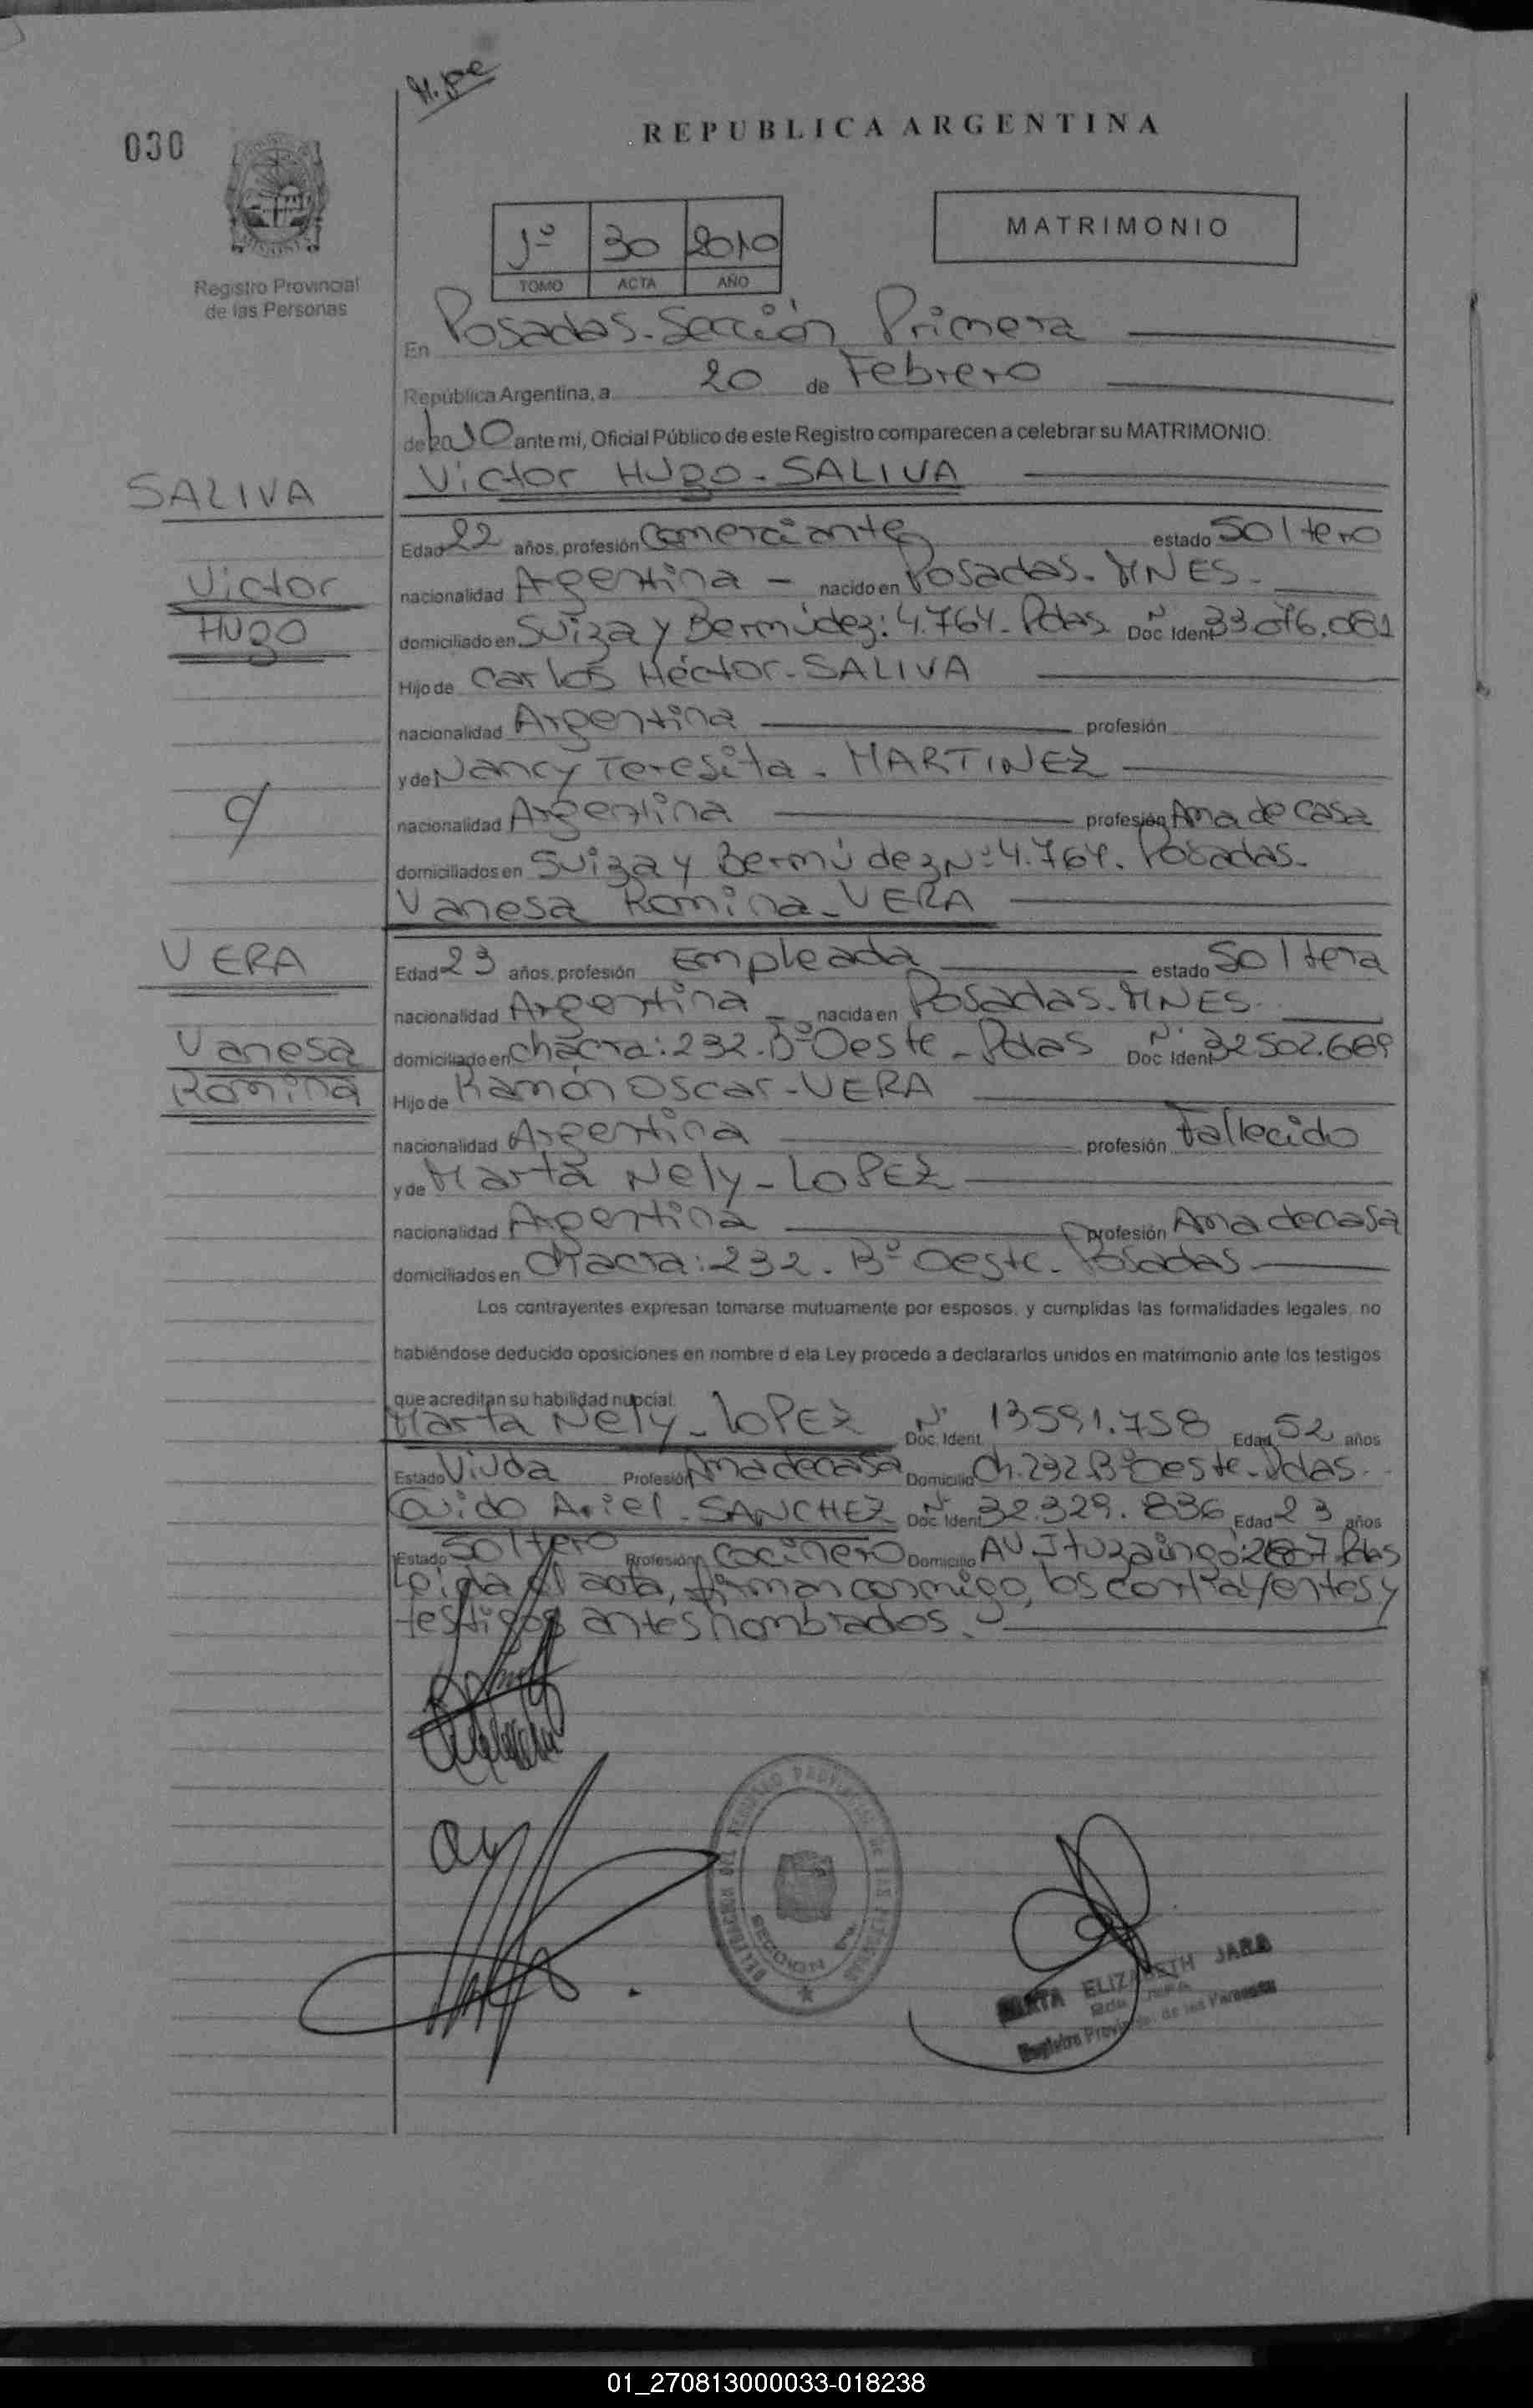 H. pe
030
REPUBLICA ARGENTINA
1º 30 2010
TOMO ACTA AÑO
MATRIMONIO
Registro Provincial
de las Personas
En Posadas-Sección Primera
República Argentina, a 20 de Febrero
de 2010 ante mi, Oficial Público de este Registro comparecen a celebrar su MATRIMONIO:
SALIVA
Victor Hugo-SALIVA
Edad 22 años, profesión Comerciante estado Soltero
Victor
nacionalidad Argentina - nacido en Posadas. MNES.
Hugo
domiciliado en Suiza y Bermúdez: 4.764- Pdas Nº Doc Ident 33.076.081
Hijo de Carlos Héctor-SALIVA
nacionalidad Argentina profesión
y de Nancy Teresita - MARTINEZ
c/
nacionalidad Argentina profesión Ama de casa
domiciliados en Suiza y Bermúdez Nº 4.764. Posadas.
Vanesa Romina-VERA
VERA
Edad 23 años, profesión Empleada estado Soltera
nacionalidad Argentina - nacida en Posadas. MNES.
Vanesa
domiciliado en chacra: 232. Bº Oeste - Pdas Nº Doc Ident 32502.689
Romina
Hijo de Ramón Oscar-VERA
nacionalidad Argentina profesión Fallecido
y de Marta Nely-LOPEZ
nacionalidad Argentina profesión Ama de casa
domiciliados en Chacra: 232. Bº Oeste. Posadas
Los contrayentes expresan tomarse mutuamente por esposos, y cumplidas las formalidades legales, no
habiéndose deducido oposiciones en nombre d ela Ley procedo a declararlos unidos en matrimonio ante los testigos
que acreditan su habilidad nupcial.
Marta Nely-LOPEZ Nº Doc. Ident. 13591.758 Edad 52 años
Estado Viuda Profesión Ama de casa Domicilio Ch. 232 Bº Oeste-Pdas.
Guido Ariel-SANCHEZ Nº Doc Ident 32.329.836 Edad 23 años
Estado Soltero Profesión Cocinero Domicilio AV Ituzaingó: Pdas
Leida el acta, firman conmigo, los contrayentes y
testigos antes nombrados.
DELEGACION REGISTRO PROVINCIAL DE LAS PERSONAS
SECCION
MARTA ELIZABETH JARA
Registro Provincial de las Personas
01_270813000033-018238